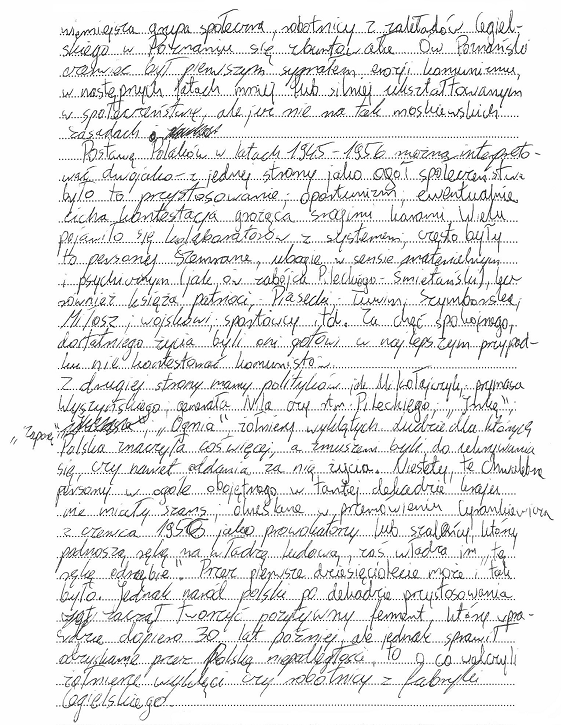 niejsza grupa społeczna, robotnicy z zakładów Cegiel-
skiego w Poznaniu się zbuntowała. Ów Poznański
czerwiec był pierwszym sygnałem erozji komunizmu,
w następnych latach mniej lub silniej ukształtowanym
w społeczeństwie, ale już nie na tak moskiewskich
zasadach
Postawę Polaków w latach 1945-1956 można interpreto-
wać dwojako - z jednej strony jako ogół społeczeństwa
było to przystosowanie, oportunizm, ewentualnie
cicha kontestacja grożąca srogimi karami. Wielu
pojawiło się kolaborantów z systemem, często były
to persony szemrane, ubogie w sensie materialnym
i psychicznym (jak ów zabójca Pileckiego - Śmietański), lecz
również księża patrioci, Piasecki, Tuwim, Szymborska,
Miłosz, wojskowi, sportowcy itd. Za chęć spokojnego,
dostatniego życia byli oni gotowi w najlepszym przypad-
ku nie kontestować komunistów.
Z drugiej strony mamy polityków jak Mikołajczyk, prymasa
Wyszyńskiego, generała Nila czy rtm. Pileckiego, "Inkę",
"Zaporę", "Ognia", żołnierzy wyklętych, ludzie dla których
Polska znaczyła coś więcej, a zmuszeni byli do ukrywania
się, czy nawet oddania za nią życia. Niestety, te chwalebne
persony w ogóle obojętnego w tamtej dekadzie kraju
nie miały szans, określane w przemówieniu Cyrankiewicza
z czerwca 1956 jako prowokatorzy lub szaleńcy, którzy
podnoszą rękę na władzę ludową, zaś władza im "tę
rękę odrąbie". Przez pierwsze dziesięciolecie może i tak
było. Jednak naród polski po dekadzie przystosowania
zaczął tworzyć pozytywny ferment, który wpra-
wdzie dopiero 30 lat później, ale jednak sprawił
odzyskanie przez Polskę niepodległości. To o co walczyli
żołnierze wyklęci czy robotnicy z fabryki
Cegielskiego.